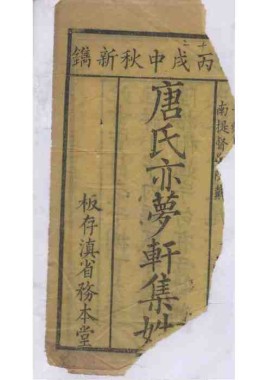 丙戌中秋新鐫
南提督
唐氏亦夢軒集姓
板存滇省務本堂